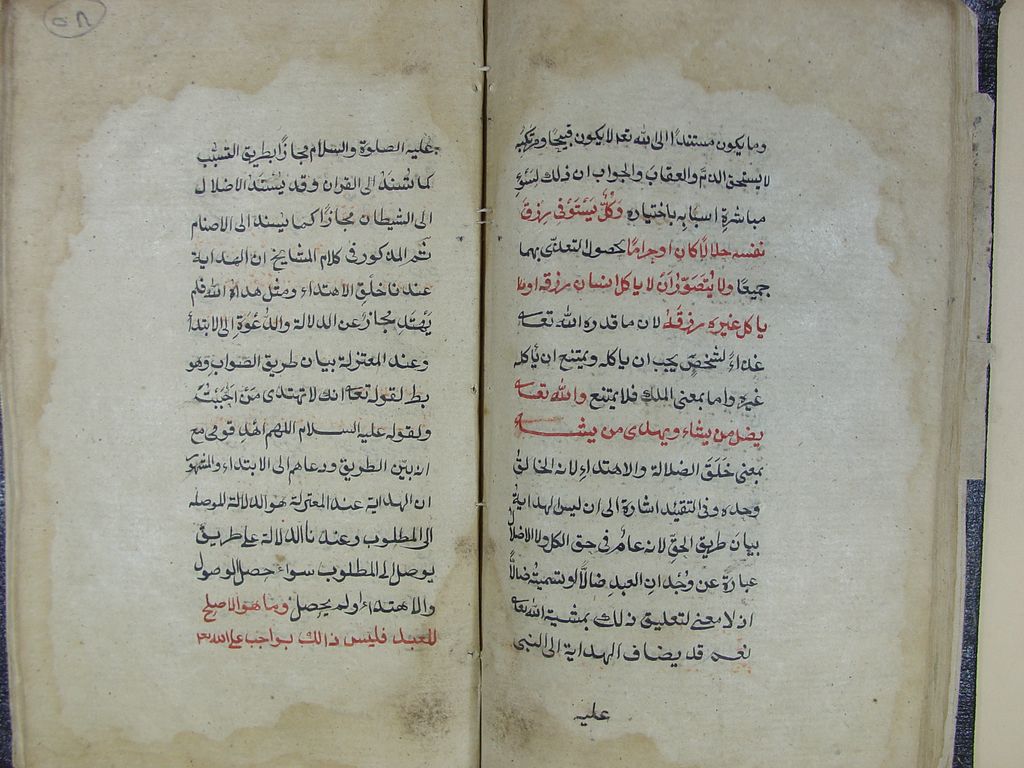 وما يكون مستندًا الى الله تعم لا يكون قبيحا ومرتكبه
لا يستحق الذمّ والعقاب والجواب ان ذلك لسوءِ
مباشرةِ اسبابِه باختياره وكلّ يَسْتَوْفى رزقَ
نفسه حلالًا كان او حرامًا لحصول التغذّى بهما
جميعًا ولا يُتصوّرُ اَنْ لا ياكل انسان رزقه او
ياكل غيره رزقَهُ لان ما قدره الله تعا
غذاءً لشخصٍ يجب ان ياكله ويمتنع ان ياكله
غيره واما بمعنى الملك فلا يمتنع والله تعا
يضل من يشاء ويهدى من يشاء
بمعنى خَلَقَ الضلالة والاهتداءِ لانه الخالق
وحده وفى التقييد اشارة الى ان ليس الهداية
بيانَ طريق الحقِّ لانه عامٌ فى حق الكل ولا الاضلال
عبارة عن وُجْدانِ العبدِ ضالًّا او تسميتِه ضالًّا
اذ لا معنى لتعليق ذلك بمشية الله تعا
نعم قد يضاف الهداية الى النبى
عليه
٥٨
عليه الصلوة والسلام مجازًا بطريق التسبب
كما تُسْنَدُ الى القران وقد يسند الاضلال
الى الشيطان مجازًا كما يسند الى الاصنام
ثم المذكور فى كلام المشايخ ان الهداية
عندنا خلق الاهتداء ومثل هداه الله فلم
يَهْتَدِ مجازٌ عن الدلالة والدعْوَة الى الابتداء
وعند المعتزلة بيان طريق الصّواب وهو
بط لقوله تعا انك لا تهتدى مَنْ اَحْبَبْتَ
ولقوله عليه السلام اللهم اهْدِ قومى مع
انه بيّن الطريق ودعاهم الى الابتداء والمشهور
ان الهداية عند المعتزلة هو الدلالة الموصله
الى المطلوب وعندنا الدلالة على طريقٍ
يوصل الى المطلوب سواء حصل الوصول
والاهتداء او لم يحصل وما هو الاصلح
للعبد فليس ذالك بواجب على الله تعم